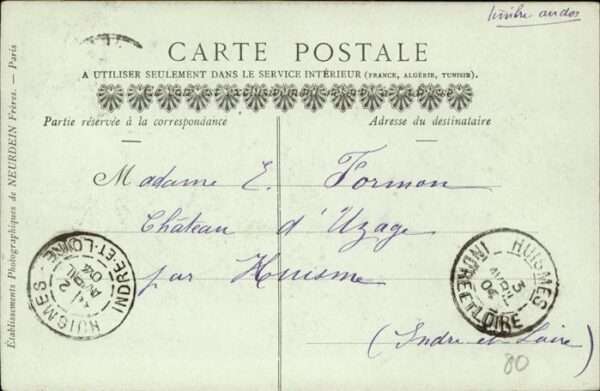 timbre au dos
CARTE POSTALE
A UTILISER SEULEMENT DANS LE SERVICE INTÉRIEUR (FRANCE, ALGÉRIE, TUNISIE).
Partie réservée à la correspondance
Adresse du destinataire
Madame E. Formon
Château d'Uzage
par Huisme
(Indre et Loire)
HUISMES
INDRE-ET-LOIRE
2
AVRIL
04
HUISMES
INDRE-ET-LOIRE
3
AVRIL
04
80
Établissements Photographiques de NEURDEIN Frères. — Paris